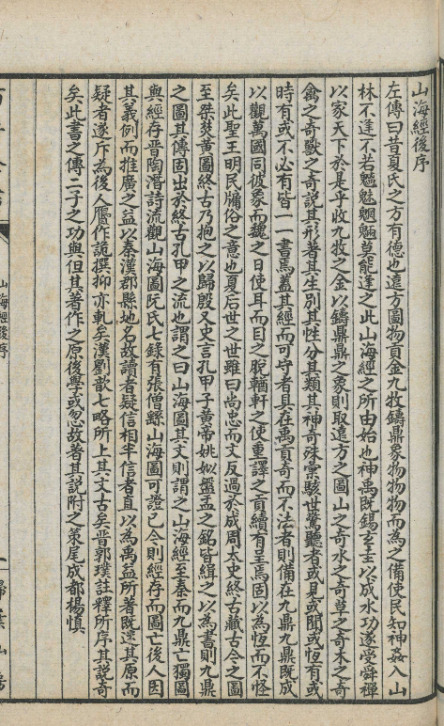 山海經後序
左傳曰昔夏氏之方有德也遠方圖物貢金九牧鑄鼎象物物物而為之備使民知神姦入山
林不逢不若魑魅魍魎莫能逢之此山海經之所由始也神禹既錫玄圭以成水功遂受舜禪
以家天下於是乎收九牧之金以鑄鼎鼎之象則取遠方之圖山之奇水之奇草之奇木之奇
禽之奇獸之奇說其形著其生別其性分其類其神奇殊彙駭世驚聽者或見或聞或恒有或
時有或不必有皆一一書焉蓋其經而可守者具在禹貢奇而不法者則備在九鼎九鼎既成
以觀萬國同彼象而魏之日使耳而目之脫輶軒之使重譯之貢續有呈焉固以為恆而不怪
矣此聖王明民牖俗之意也夏后世之世雖曰尚忠而文反過於成周太史終古藏古今之圖
至桀焚黃圖終古乃抱之以歸殷又史言孔甲子黃帝姚姒盤盂之銘皆緝之以為書則九鼎
之圖其傳固出於終古孔甲之流也謂之曰山海圖其文則謂之山海經至秦而九鼎亡獨圖
與經存晉陶潛詩流觀山海圖阮氏七錄有張僧繇山海圖可證已今則經存而圖亡後人因
其義例而推廣之益以秦漢郡縣地名故讀者疑信相半信者直以為禹益所著既迷其原而
疑者遂斥為後人贗作詭撰抑亦軋矣漢劉歆七略所上其文古矣晉郭璞註釋所序其說奇
矣此書之傳二子之功與但其著作之原後學或忽故著其說附之策尾成都楊慎
山海經後序